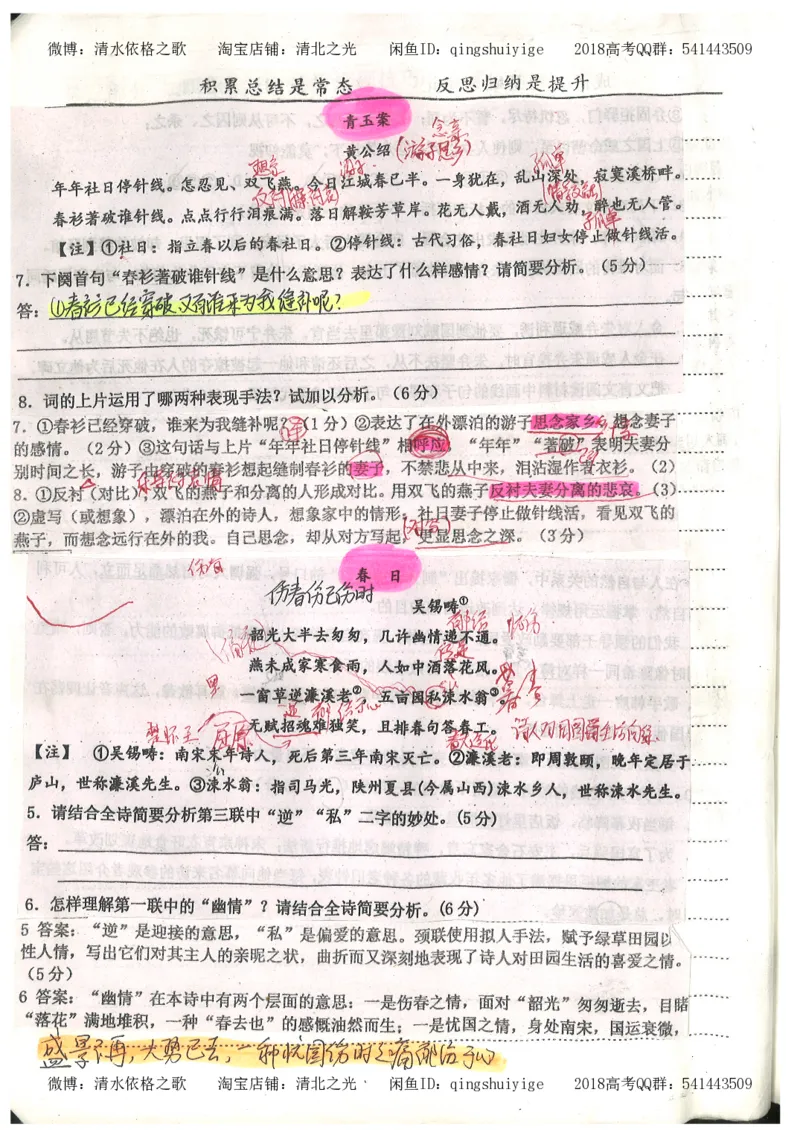 微博：清水依格之歌 淘宝店铺：清北之光 闲鱼ID：qingshuiyige 2018高考QQ群：541443509
积累总结是常态 反思归纳是提升
青玉案
黄公绍（游子思乡）
年年社日停针线。怎忍见、双飞燕。今日江城春已半。一身犹在，乱山深处，寂寞溪桥畔。
春衫著破谁针线。点点行行泪痕满。落日解鞍芳草岸。花无人戴，酒无人劝，醉也无人管。
孤单
【注】①社日：指立春以后的春社日。②停针线：古代习俗，春社日妇女停止做针线活。
7．下阕首句“春衫著破谁针线”是什么意思？表达了什么样感情？请简要分析。（5分）
答：①春衫已经穿破，又有谁来为我缝补呢？
8．词的上片运用了哪两种表现手法？试加以分析。（6分）
7．①春衫已经穿破，谁来为我缝补呢？（1分）②表达了在外漂泊的游子思念家乡，想念妻子
的感情。（2分）③这句话与上片“年年社日停针线”相呼应，“年年”“著破”表明夫妻分
别时间之长，游子由穿破的春衫想起缝制春衫的妻子，不禁悲从中来，泪沾湿作者衣衫。（2）
8．①反衬（对比），双飞的燕子和分离的人形成对比。用双飞的燕子反衬夫妻分离的悲哀。（3）
②虚写（或想象），漂泊在外的诗人，想象家中的情形，社日妻子停止做针线活，看见双飞的
燕子，而想念远行在外的我。自己思念，却从对方写起，更显思念之深。（3分）
伤春
春 日
伤春伤己伤时
吴锡畴①
韶光大半去匆匆，几许幽情递不通。
燕未成家寒食雨，人如中酒落花风。
一窗草逆濂溪老②，五亩园私涑水翁③。
无赋招魂难独笑，且排春句答春工。
楚怀王 屈原
【注】 ①吴锡畴：南宋末年诗人，死后第三年南宋灭亡。②濂溪老：即周敦颐，晚年定居于
庐山，世称濂溪先生。③涑水翁：指司马光，陕州夏县（今属山西）涑水乡人，世称涑水先生。
5．请结合全诗简要分析第三联中“逆”“私”二字的妙处。（5分）
答：
6．怎样理解第一联中的“幽情”？请结合全诗简要分析。（6分）
5 答案：“逆”是迎接的意思，“私”是偏爱的意思。颈联使用拟人手法，赋予绿草田园以
性人情，写出它们对其主人的亲昵之状，曲折而又深刻地表现了诗人对田园生活的喜爱之情。
（5分）
6 答案：“幽情”在本诗中有两个层面的意思：一是伤春之情，面对“韶光”匆匆逝去，目睹
“落花”满地堆积，一种“春去也”的感慨油然而生；一是忧国之情，身处南宋，国运衰微，
盛景不再，大势已去，一种忧国伤时之痛郁结于心
微博：清水依格之歌 淘宝店铺：清北之光 闲鱼ID：qingshuiyige 2018高考QQ群：541443509